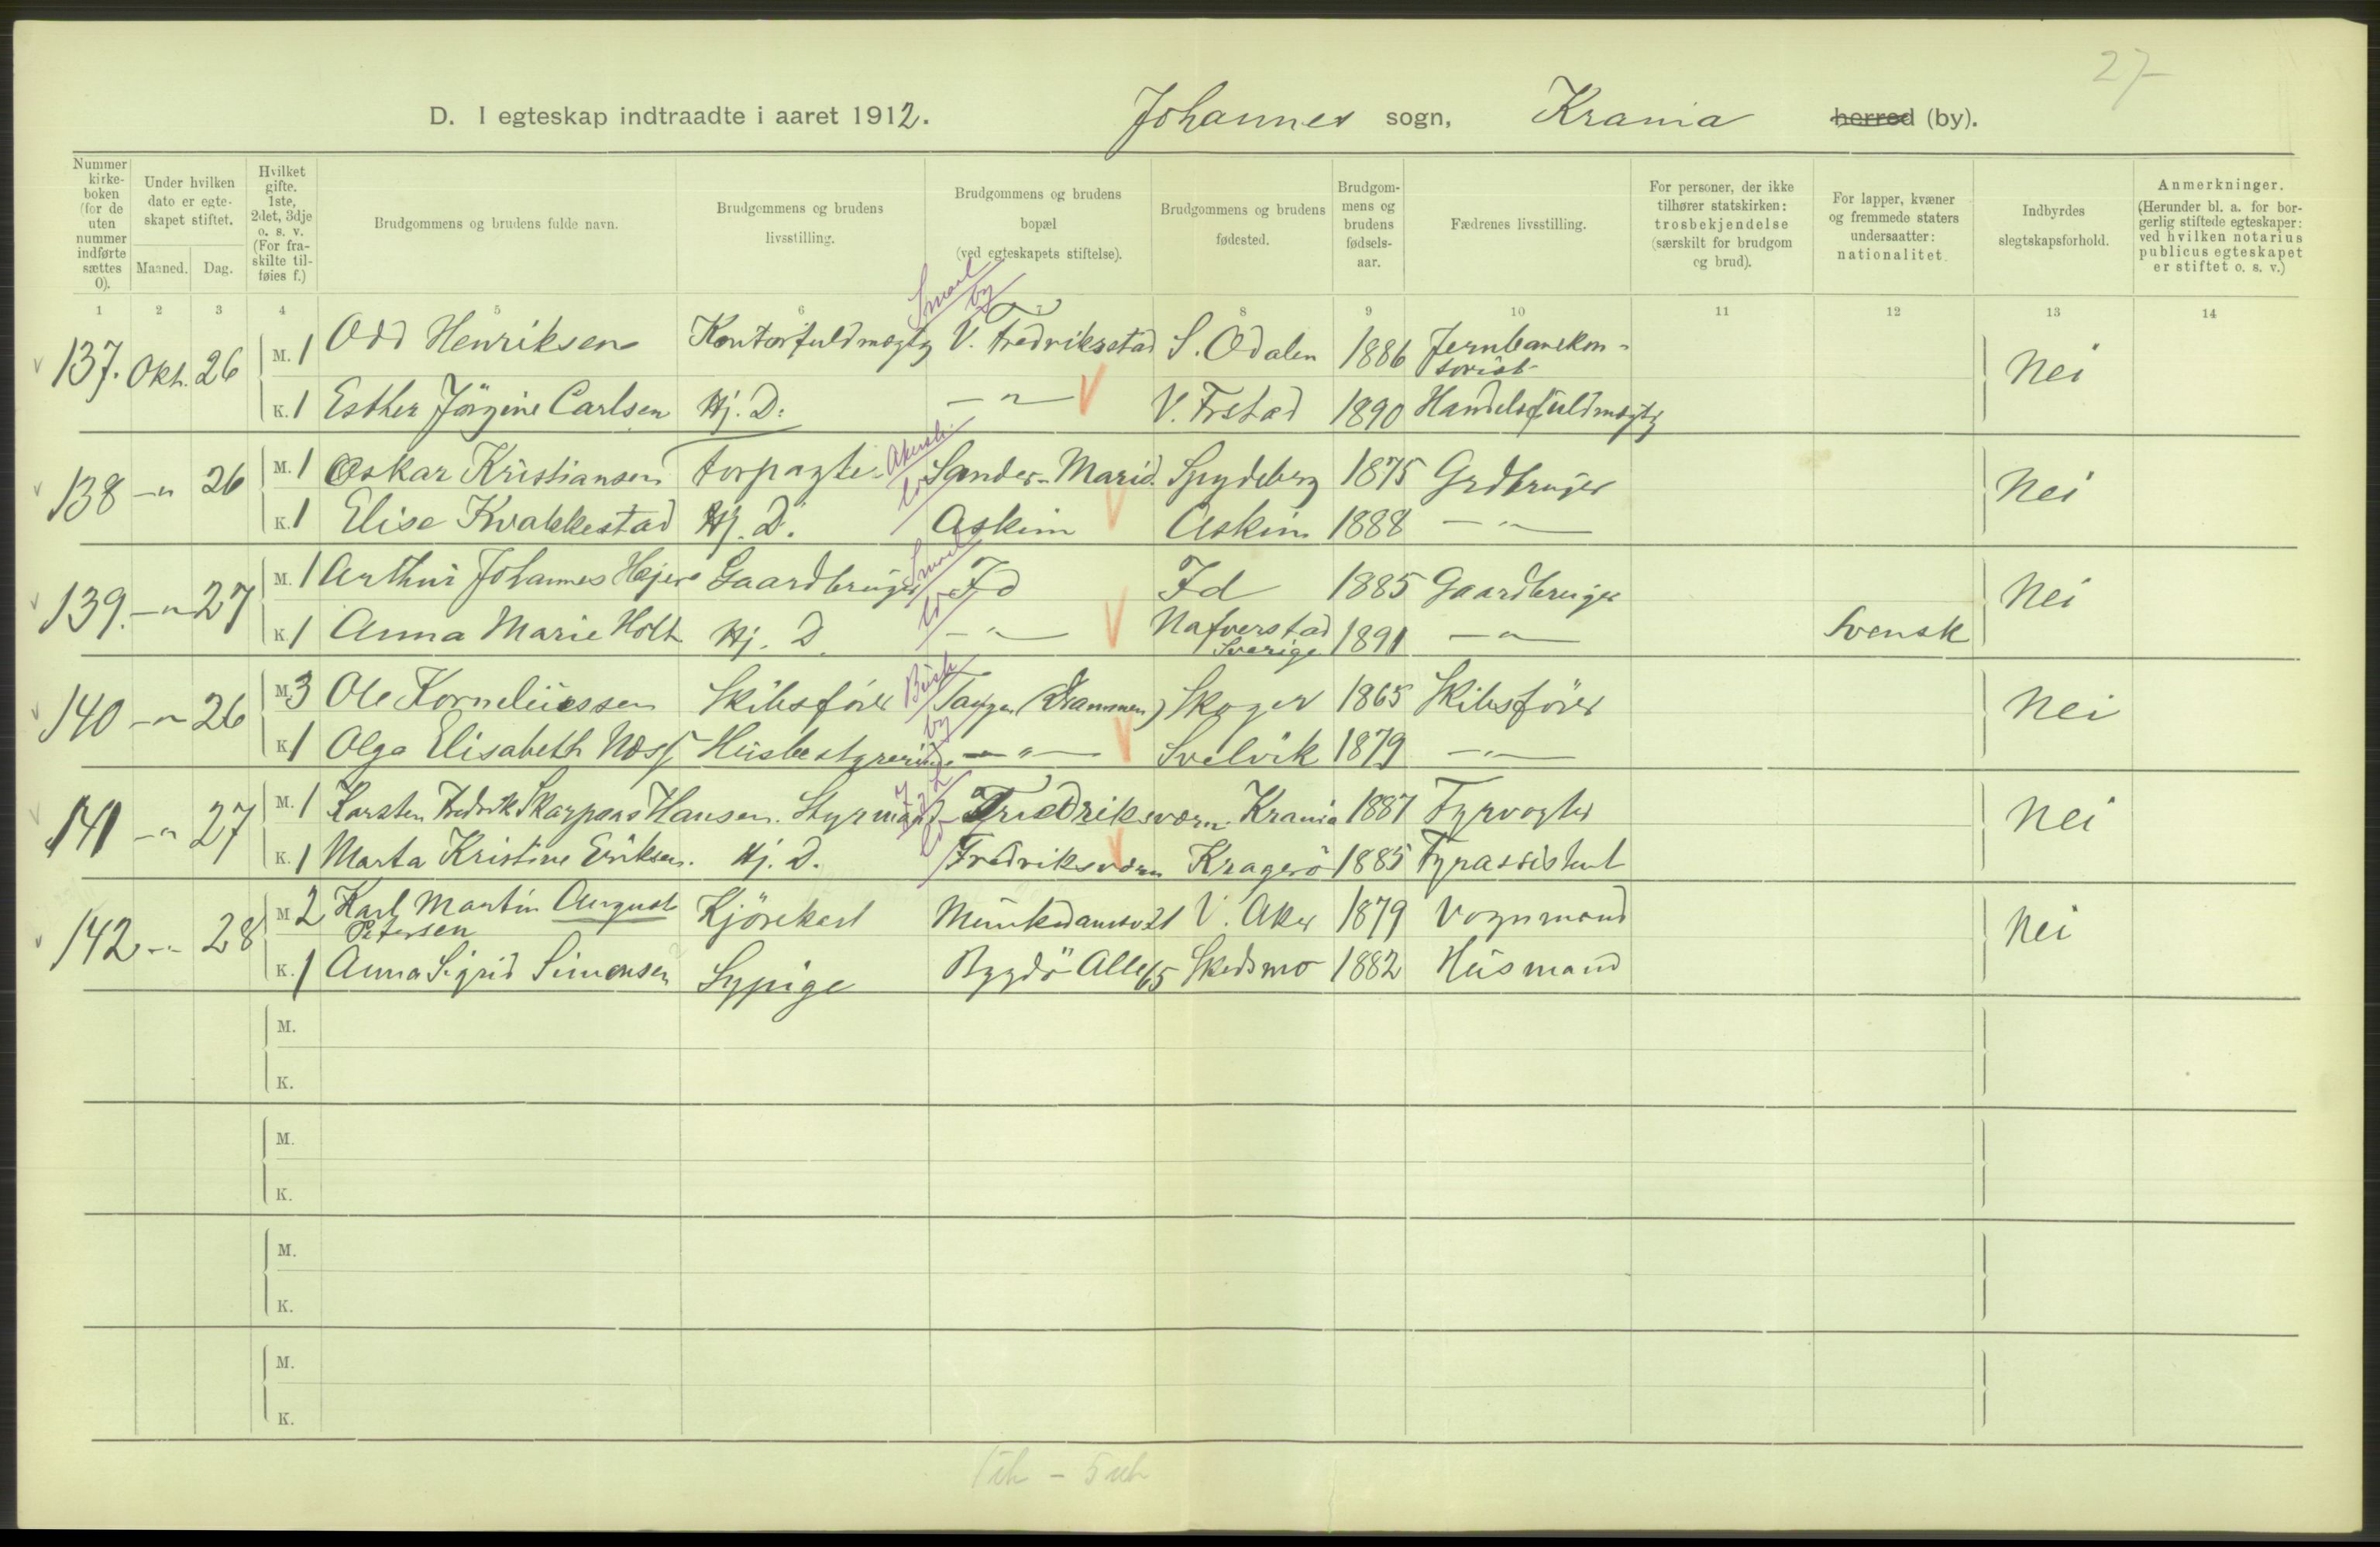 27
D. I egteskap indtraadte i aaret 1912. Johannes sogn, Krania herred (by).
Nummer kirkeboken (for de uten nummer indførte sættes 0). Under hvilken dato er egteskapet stiftet. Maaned. Dag. Hvilket gifte. 1ste, 2det, 3dje o. s. v. (For fraskilte tilføies f.) Brudgommens og brudens fulde navn. Brudgommens og brudens livsstilling. Brudgommens og brudens bopæl (ved egteskapets stiftelse). Brudgommens og brudens fødested. Brudgommens og brudens fødselsaar. Fædrenes livsstilling. For personer, der ikke tilhører statskirken: trosbekjendelse (særskilt for brudgom og brud). For lapper, kvæner og fremmede staters undersaatter: nationalitet. Indbyrdes slegtskapsforhold. Anmerkninger. (Herunder bl. a. for borgerlig stiftede egteskaper: ved hvilken notarius publicus egteskapet er stiftet o. s. v.)
1 2 3 4 5 6 7 8 9 10 11 12 13 14
137. Okt. 26 M. 1 Odd Henriksen Kontorfuldmægtg Smaal by V. Fredriksstad S. Odalen 1886 Jernbanekontorist Nei
K. 1 Esther Jörgine Carlsen Hj. D. — " — V. Frstad 1890 Handelsfuldmægtg
138 — " 26 M. 1 Oskar Kristiansen Forpagter Akersh. Sander-Marid. Spydeberg 1875 Grdbruger Nei
K. 1 Elise Kvakkestad Hj. D. Askim Askim 1888 — " —
139. — " 27 M. 1 Arthur Johannes Højer Gaardbruger Smaal Id Id 1885 Gaardbruger Nei
K. 1 Anna Marie Holt Hj. D. — " — Nafverstad Sverige 1891 — " — Svensk
140 — " 26 M. 3 Ole Korneliussen Skibsförer Busk by Tangen (Drammen) Skoger 1865 Skibsförer Nei
K. 1 Olga Elisabeth Næss Husbestyrerinde — " — Svelvik 1879 — " —
141 — " 27 M. 1 Karsten Fredrik Skarpaas Hansen. Styrmand Fredriksværn Krania 1887 Fyrvogter Nei
K. 1 Marta Kristine Eriksen. Hj. D. Fredriksværn Kragerö 1885 Fyrassistent
142 — " 28 M. 2 Karl Martin August Petersen Kjörekarl Munkedamsv 21 V. Aker 1879 Vognmand Nei
K. 1 Anna Sigrid Simensen Sypige Bygdö Alle 65 Skedsmo 1882 Husmand
M.
K.
M.
K.
M.
K.
M.
K.